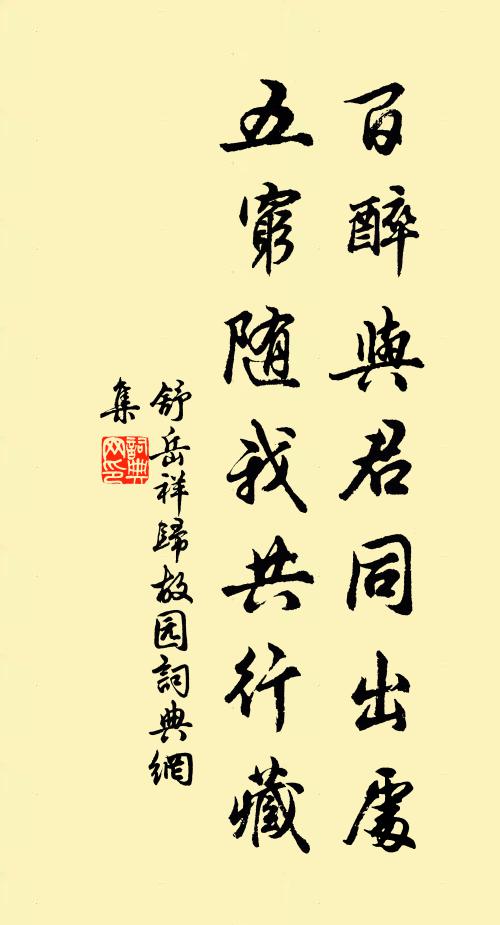 百醉與君同出處
五窮随我共行藏
舒岳祥歸故园詞典網
集
詞典网印